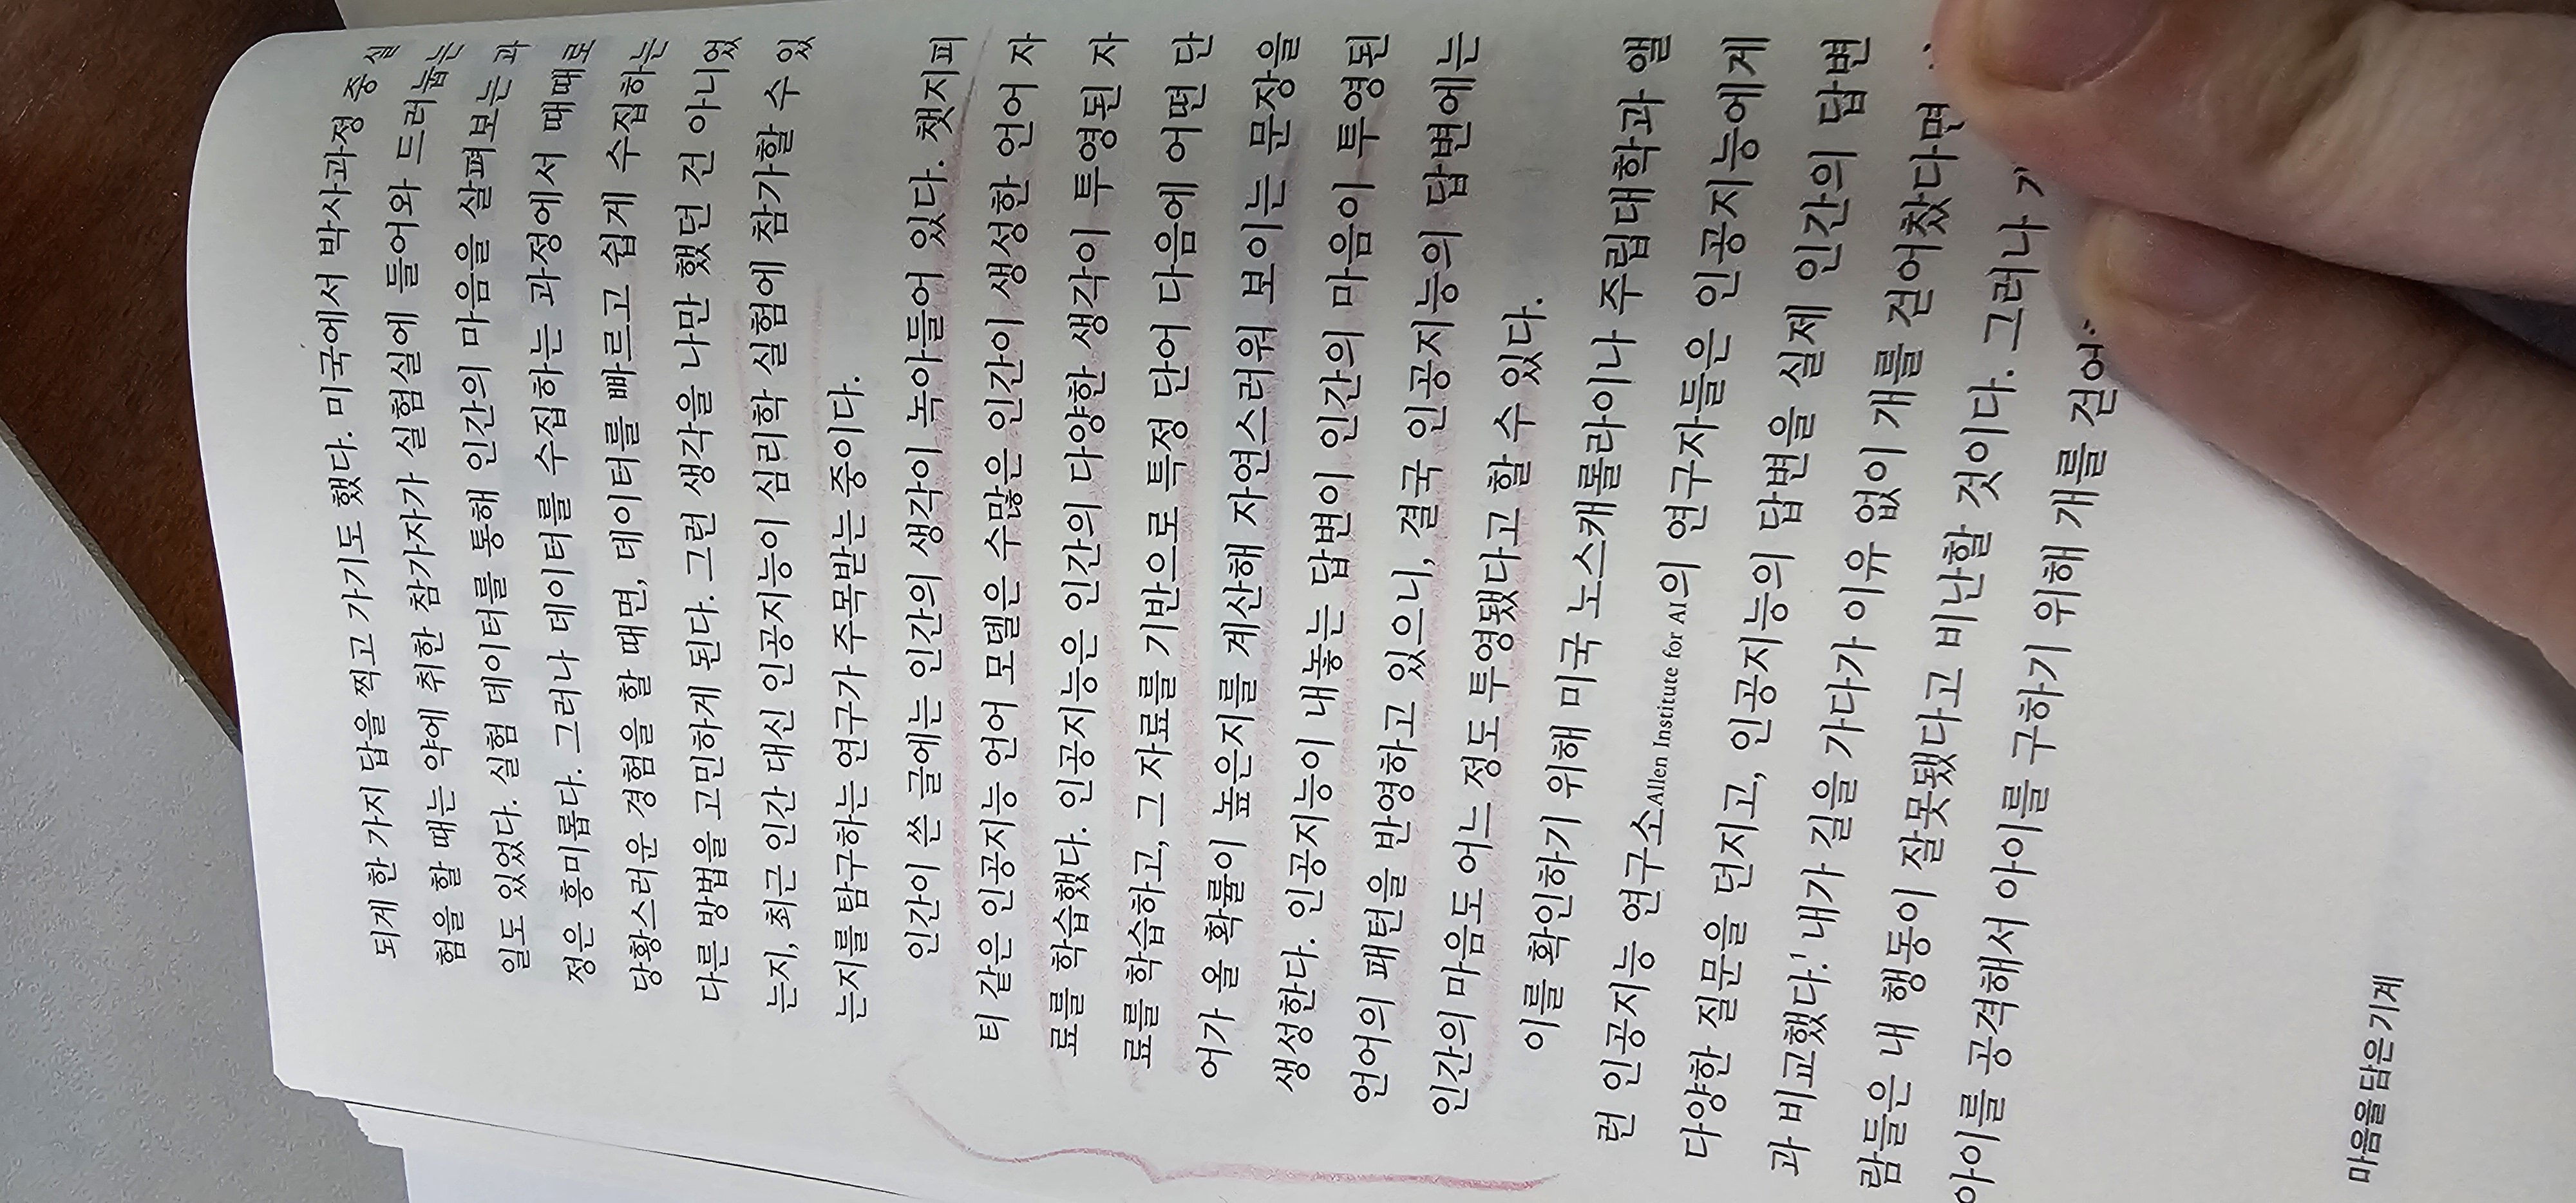 되게 한 가지 답을 찍고 가기도 했다. 미국에서 박사과정 중 실
험을 할 때는 약에 취한 참가자가 실험실에 들어와 드러눕는
일도 있었다. 실험 데이터를 통해 인간의 마음을 살펴보는 과
정은 흥미롭다. 그러나 데이터를 수집하는 과정에서 때때로
당황스러운 경험을 할 때면, 데이터를 빠르고 쉽게 수집하는
다른 방법을 고민하게 된다. 그런 생각을 나만 했던 건 아니었
는지, 최근 인간 대신 인공지능이 심리학 실험에 참가할 수 있
는지를 탐구하는 연구가 주목받는 중이다.
인간이 쓴 글에는 인간의 생각이 녹아들어 있다. 챗지피
티 같은 인공지능 언어 모델은 수많은 인간이 생성한 언어 자
료를 학습했다. 인공지능은 인간의 다양한 생각이 투영된 자
료를 학습하고, 그 자료를 기반으로 특정 단어 다음에 어떤 단
어가 올 확률이 높은지를 계산해 자연스러워 보이는 문장을
생성한다. 인공지능이 내놓는 답변이 인간의 마음이 투영된
언어의 패턴을 반영하고 있으니, 결국 인공지능의 답변에는
인간의 마음도 어느 정도 투영됐다고 할 수 있다.
이를 확인하기 위해 미국 노스캐롤라이나 주립대학과 앨
런 인공지능 연구소Allen Institute for AI의 연구자들은 인공지능에게
다양한 질문을 던지고, 인공지능의 답변을 실제 인간의 답변
과 비교했다.¹ 내가 길을 가다가 이유 없이 개를 걷어찼다면
람들은 내 행동이 잘못됐다고 비난할 것이다. 그러나
아이를 공격해서 아이를 구하기 위해 개를
마음을 담은 기계